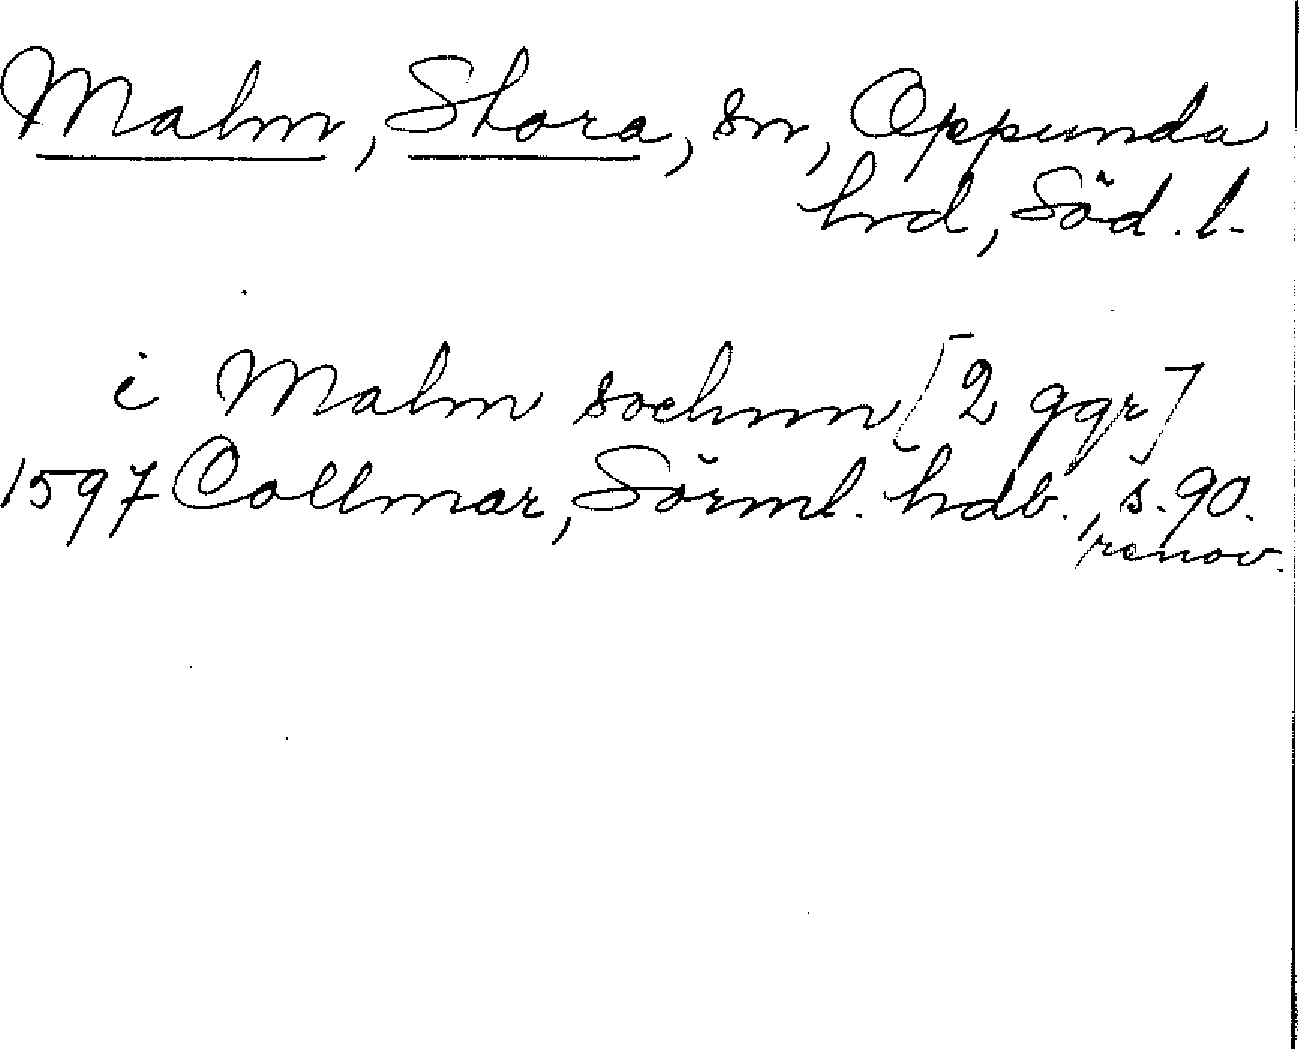 Malm, Stora, sn, Oppunda
hrd, Söd. l.
i Malm sochnn [2 ggr]
1597 Collmar, Sörml. hdb., s. 90.
renov.